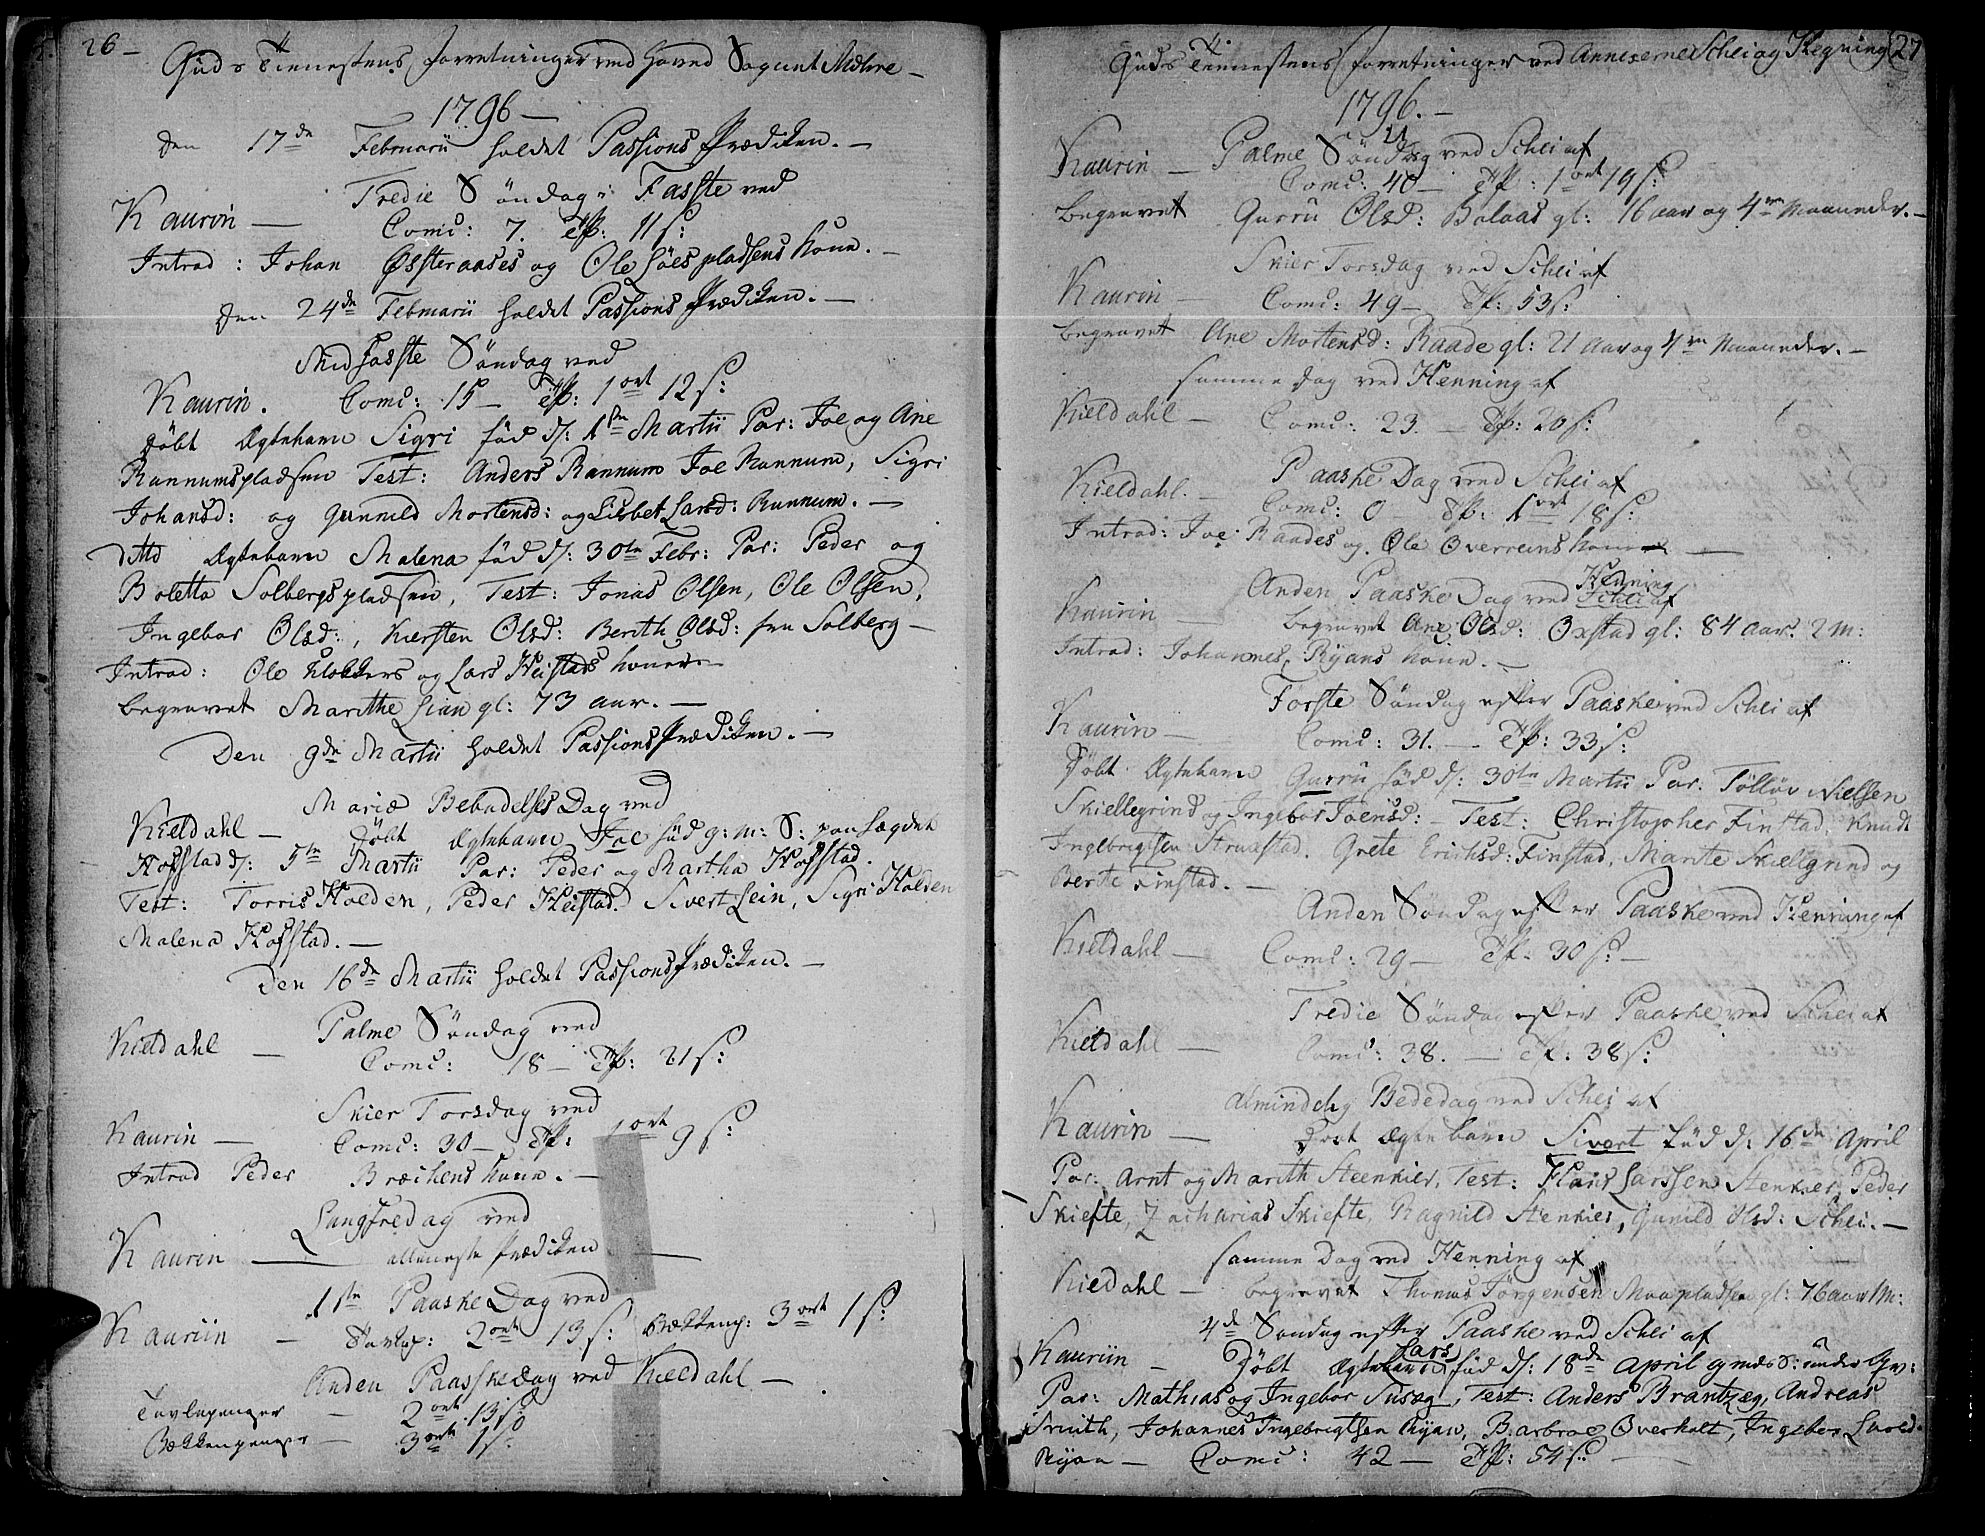 26 –
Guds Tienestens forretninger ved Hoved Sognet Mære –
1796 –
Den 17de Februarii holdet Passions Prædiken. –
Tredie Søndag i Fasste ved
Kaurin – Comd: 7. Tf: 11 s:
Introd: Johan Østeraases og Ole pladsens Kone. –
Den 24de Februarii holdet Passions Prædiken. –
Midfasste Søndag ved
Kaurin. Comd: 15 – Tf: 1 ort 12 s:
Døbt Ægtebarn Sigri fød d: 1ste Martii Par: Joe og Ane
Rannumspladsen Test: Anders Rannum Joe Rannum, Sigri
Johansd: og Gunnild Mortensd: og Lisbet Larsd: Rannum. –
Ditto Ægtebarn Malena fød d: 30te Febr: Par: Peder og
Boletta Solbergspladsen, Test: Jonas Olsen, Ole Olsen,
Ingebor Olsd:, Kiersten Olsd: Berith Olsd: fra Solberg –
Introd: Ole Klokkers og Lars Heistads Koner
begravet Marithe Lian gl: 73 aar. –
Den 9de Martii holdet Passions Prædiken. –
Mariæ Bebudelses Dag ved
Kieldahl – Døbt Ægtebarn Joe fød g: m: S: paa Hægdet
Hofstad d: 5te Martii Par: Peder og Martha Hofstad.
Test: Torris Holden, Peder Heistad. Sivert Lein, Sigri Holden
Malena Hofstad. –
Den 16de Martii holdet Passions Prædiken. –
Palme Søndag ved
Kieldahl – Comd: 18 – Tf: 21 s:
Skier Torsdag ved
Kaurin – Comd: 30 – Tf: 1 ort 9 s:
Introd Peder Bræchens Kone. –
Langfredag ved
Kaurin – alleneste Prædiken –
1ste Paaske Dag ved
Kauriin – Tavlep: 2 ort 13 s: Bækkenp: 3 ort 1 s:
Anden Paaske Dag ved Kieldahl –
Tavlepenger – 2 ort 13 s:
Bækkenpenger – 3 ort 1 s:
27
Guds Tienestens forretninger ved Annexerne Schei og Hegning
1796. –
Kaurin – Palme Søndag ved Schei af
Comd: 40 – Tf: 1 ort 19 s:
begravet Gurru Olsd: Bolaas gl: 16 aar og 4re Maaneder. –
Skier Torsdag ved Schei af
Kaurin – Comd: 49 – Tf: 53 s:
begravet Ane Mortensd: Raade gl: 21 Aar og 4re Maaneder. –
samme dag ved Henning af
Kieldahl – Comd: 23. – Tf: 20 s:
Paaske Dag ved Schei af
Kieldahl. – Comd: 0 Tf: 1 ort 18 s:
Introd: Joe Raades og Ole Overreins Kone –
Henning
Anden Paaske Dag ved Schei af
Kaurin – begravet Ane Olsd: Oxstad gl: 84 aar. 2 M:
Introd: Johannes Ryans Kone. –
Forste Søndag efter Paaske ved Schei af
Kaurin – Comd: 31. – Tf: 33 s:
Døbt Ægtebarn Gurru fød d: 30te Martii Par: Tolløv Nielsen
Skiellegrind og Ingebor Joensd: – Test: Christopher Finstad, Knud
Ingebrigtsen Struxstad. Grete Erichsd: Finstad, Marite Skiellegrind og
Berte Finstad. –
Anden Søndag efter Paaske ved Henning af
Kieldahl – Comd: 29 – Tf: 30 s: –
Tredie Søndag efter Paaske ved Schei af
Kieldahl – Comd: 38. – Tf: 38 s:
Almindelig Bededag ved Schei af
Kaurin – Døbt Ægtebarn Sivert fød d: 16de April
Par: Arnt og Marith Steenkier, Test: Hans Larssen Stenkier, Peder
Skiefte, Zacharias Skiefte, Ragnild Stenkier, Gunild Olsd: Schei. –
samme Dag ved Henning af
Kieldahl – begravet Thomas Jørgensen Moepladsen gl: 76 aar 1 M:
4de Søndag efter Paaske ved Schei af
Kauriin – Døbt Ægtebarn Lars fød d: 18de April g: M: S: under Gv:
Par: Mathias og Ingebor Suseg, Test: Anders Brantzeg, Andreas
Smith, Johannes Ingebrigtsen Ryan, Barbroe Overholt, Ingebor Larsd:
Ryan – Comd: 42 – Tf: 54 s: